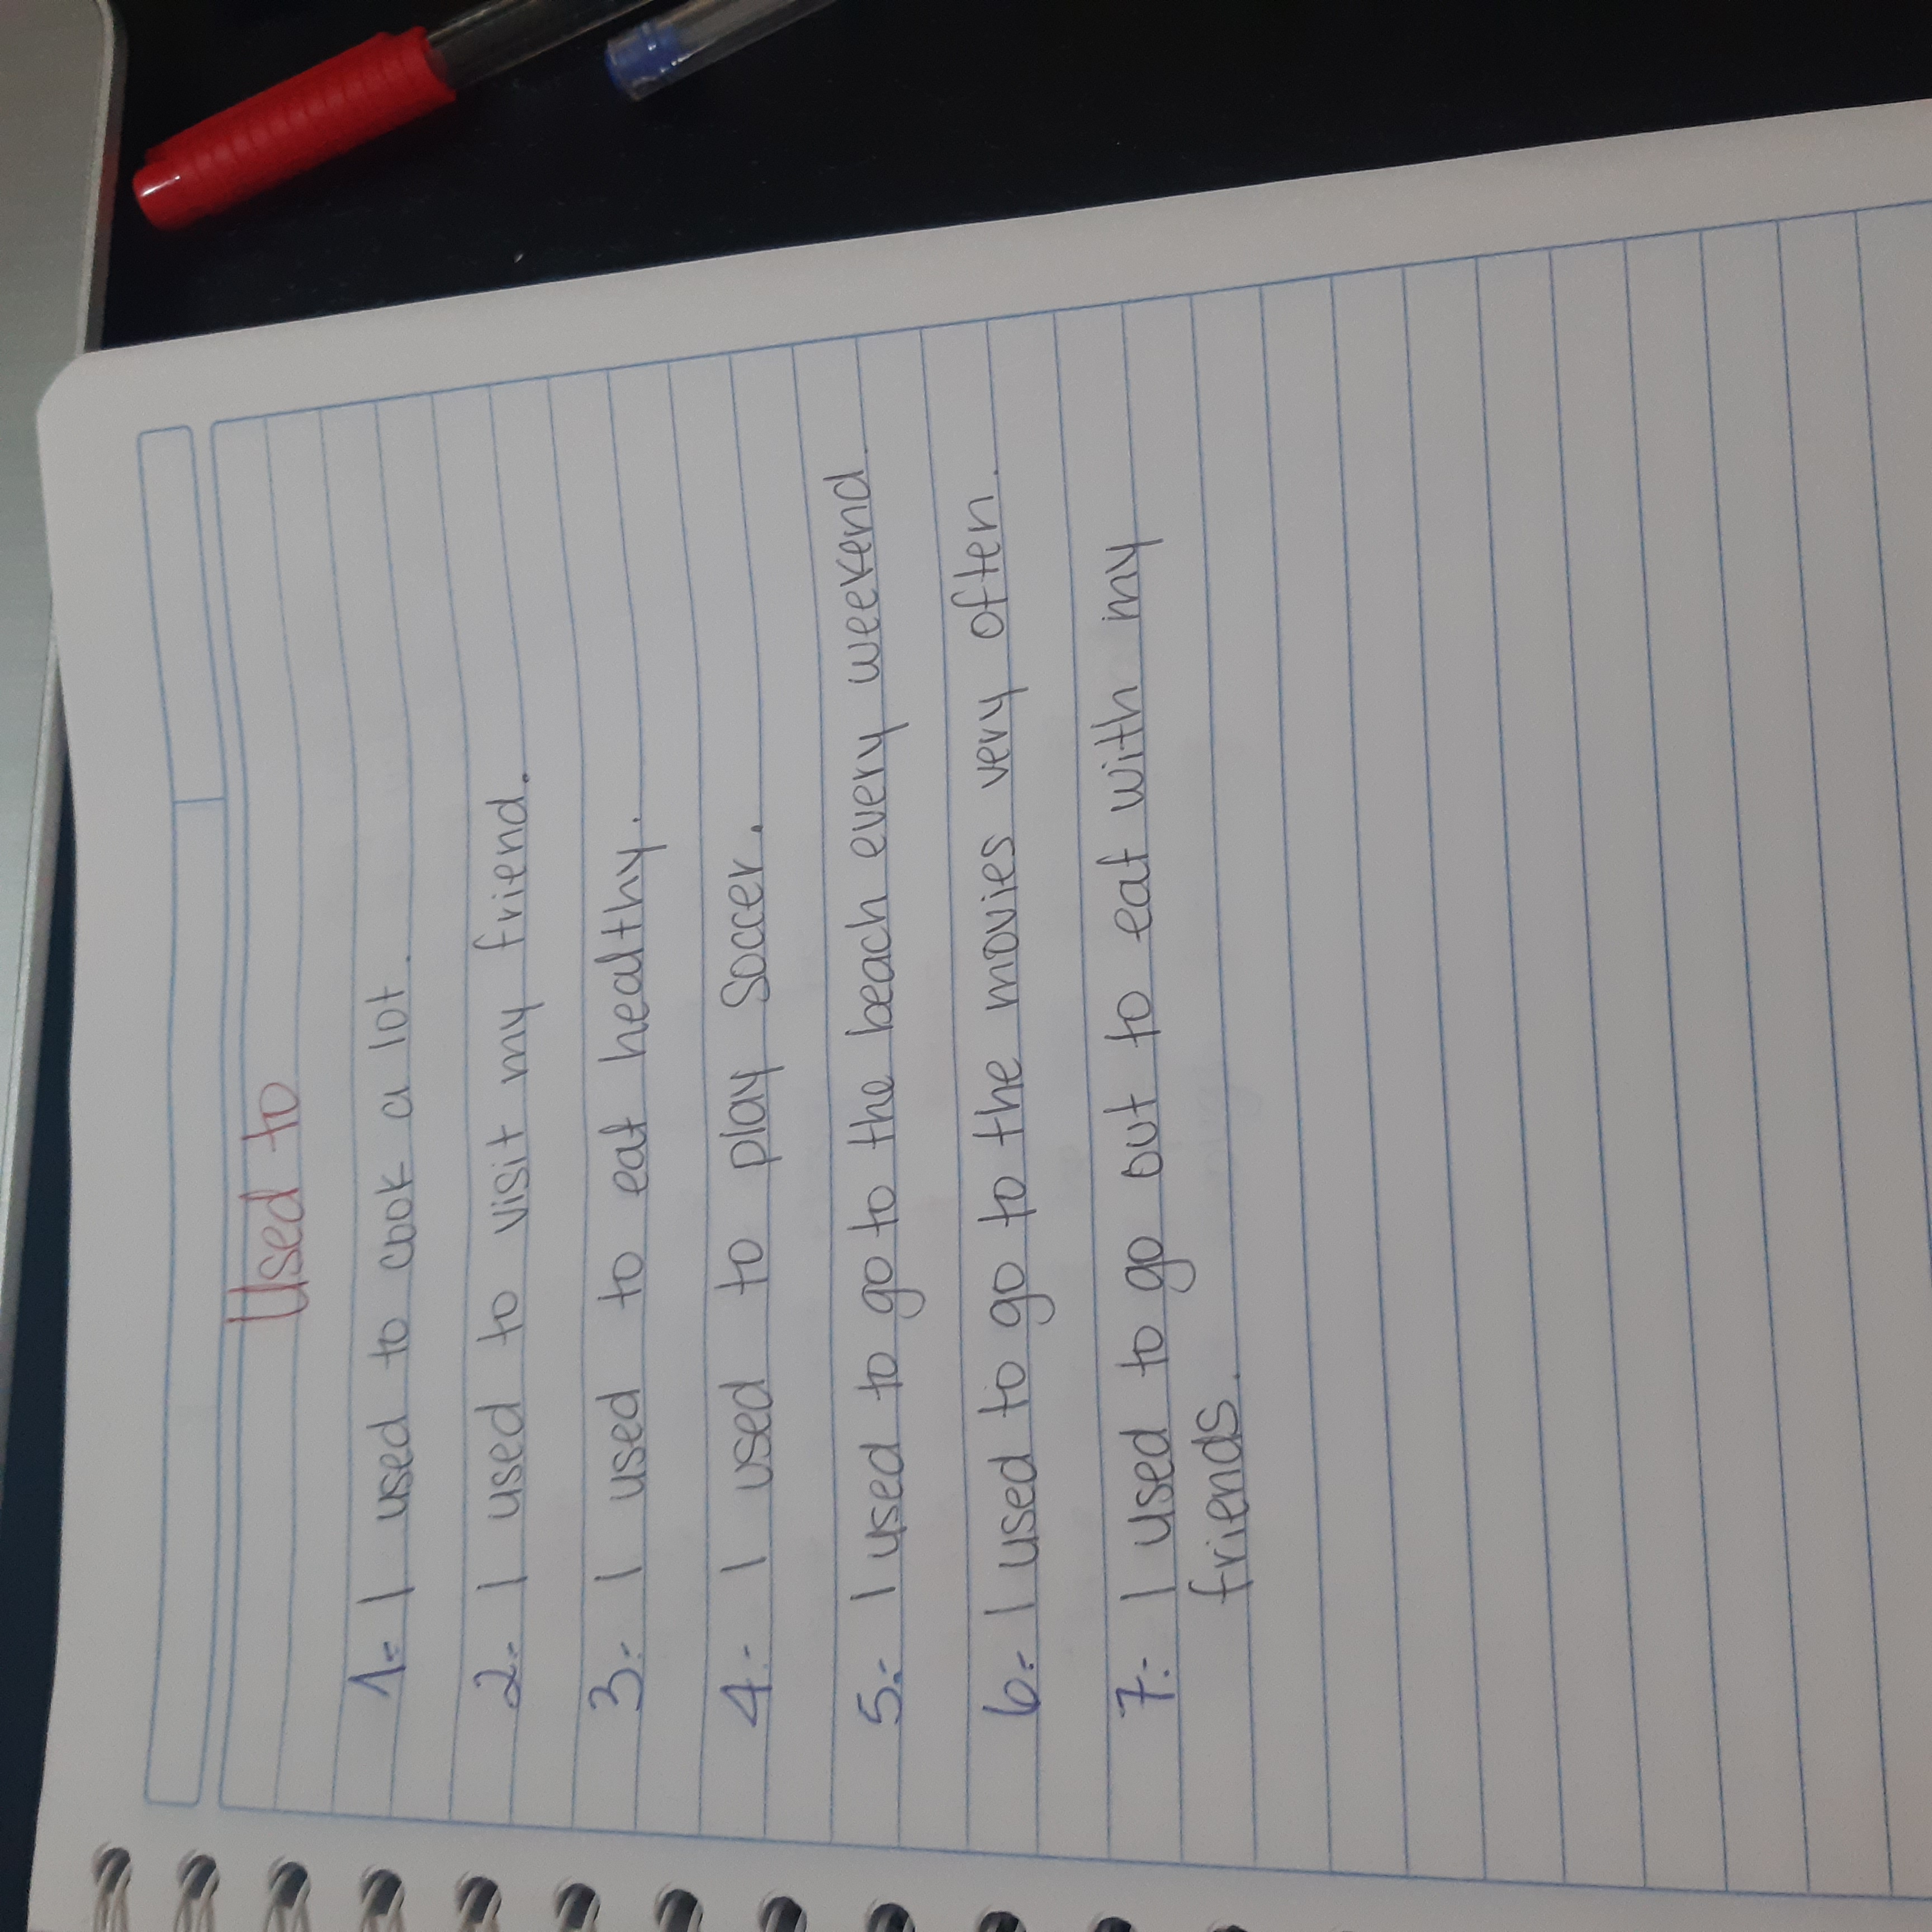 Used to
1.- I used to cook a lot.
2.- I used to visit my friend.
3.- I used to eat healthy.
4.- I used to play soccer.
5.- I used to go to the beach every weekend.
6.- I used to go to the movies very often.
7.- I used to go out to eat with my
friends.